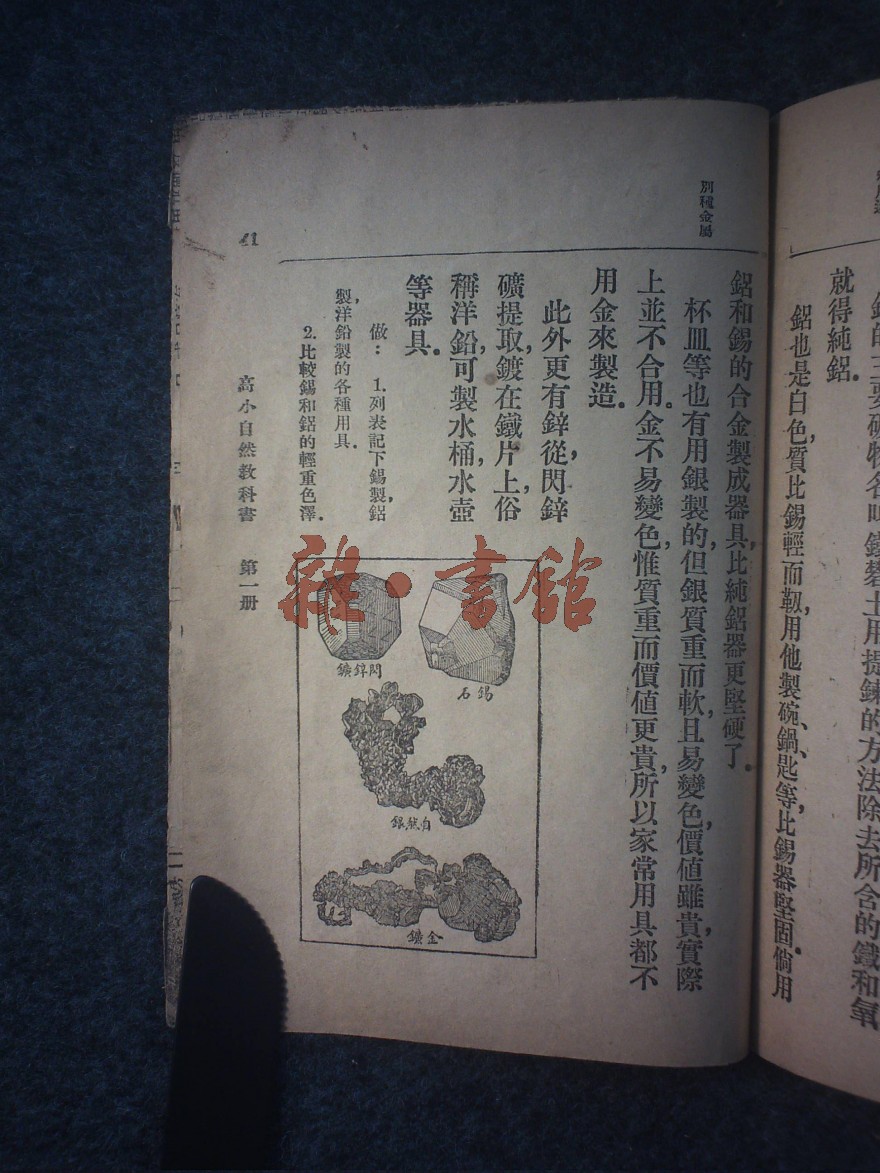 就得純鋁。
鋁也是白色，質比錫輕而韌，用他製碗、鍋、匙等，比錫器堅固。倘用
別種金屬
鋁和錫的合金製成器具，比純鋁器更堅硬了。
杯皿等也有用銀製的，但銀質重而軟，且易變色，價值雖貴，實際
上並不合用。金不易變色，惟質重而價值更貴，所以家常用具都不
用金來製造。
此外更有鋅，從閃鋅
礦提取，鍍在鐵片上，俗
稱洋鉛，可製水桶，水壺
等器具。
做：1.列表記下錫製，鋁
製，洋鉛製的各種用具。
2.比較錫和鋁的輕重色澤。
錫石
閃鋅鑛
自然銀
金鑛
高小自然教科書 第一册
41
雜·書館